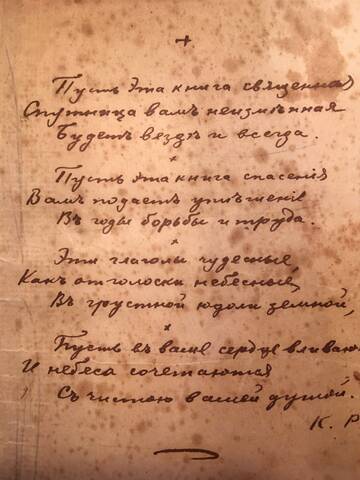 Пусть эта книга священная
Спутница вамъ неизмѣнная
Будетъ вездѣ и всегда.
Пусть эта книга спасенія
Вамъ подаетъ утѣшеніе
Въ годы борьбы и труда.
Эти глаголы чудесные,
Какъ отголоски небесные,
Въ грустной юдоли земной,
Пусть въ ваше сердце вливаю
И небеса сочетаются
Съ чистою вашей душой.
К. Р